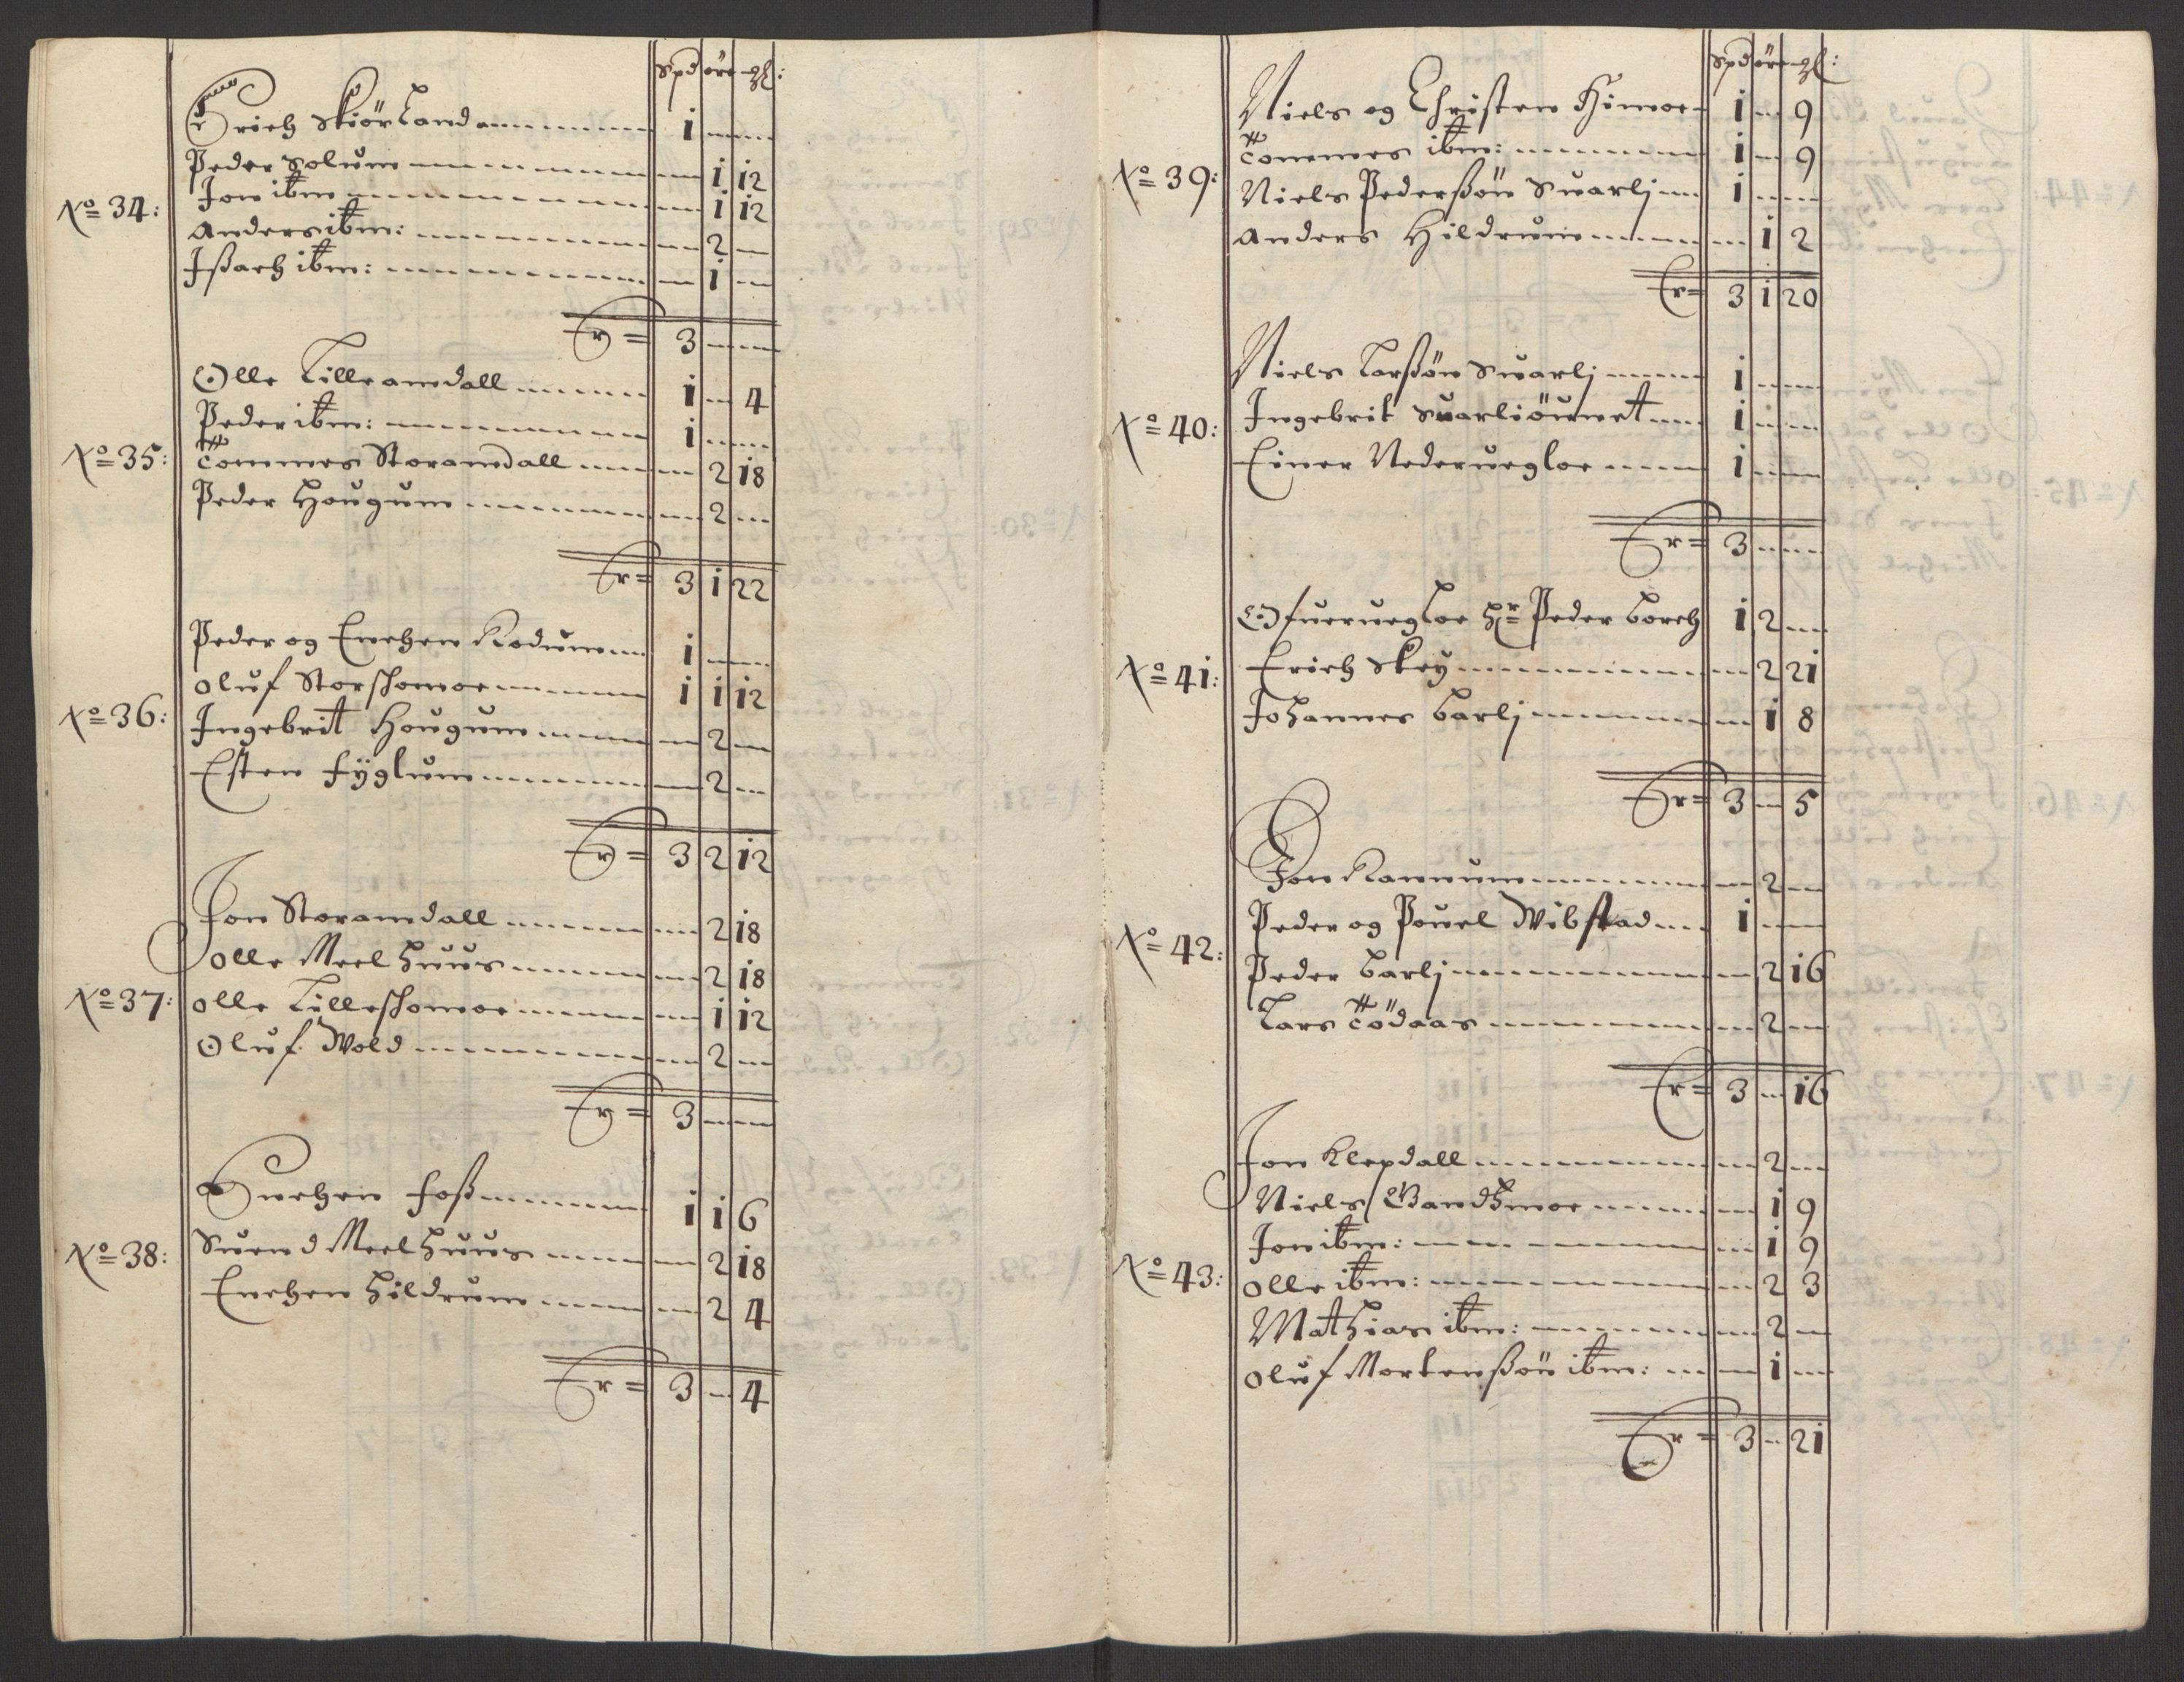 Spd øre ₰:
Erich Skiørland 1
Peder Solum 1 12
Jon ibm 1 12
No= 34:
Anders ibm: 2
Jßach ibm: 1
Er= 3
Olle Lilleamdall 1 4
Peder ibm: 1
No= 35: Tommes Storamdall 2 18
Peder Hougum 2
Er= 3 1 22
Peder og Enchen Rodum 1
Oluf Storschomoe 1 1 12
No= 36: Ingebrit Hougum 2
Esten Fÿglum 2
Er= 3 2 12
Jon Storamdall 2 18
Olle Meelhuus 2 18
No= 37: Olle Lilleschomoe 1 12
Oluf Wold 2
Er= 3
Enchen Foß 1 1 6
No= 38: Suend Meelhuus 2 18
Enchen Hildrum 2 4
Er= 3 4
Spd øre ₰:
Niels og Christen Himoe 1 9
Tommes ibm: 1 9
No= 39: Niels Pederßøn Suarlj 1
Anders Hildrum 1 2
Er= 3 1 20
Niels Larßøn Suarlj 1
No= 40: Ingebrit Suarliøunet 1
Einer Nederuegloe 1
Er= 3
Ofueruegloe Hr= Peder Borch 1 2
No= 41: Erich Skey 2 21
Johannes Barlj 1 8
Er= 3 5
Jon Rannum 2
Peder og Pouel Wibstad 1
No= 42:
Peder Barlj 2 16
Lars Tødaas 2
Er= 3 16
Jon Klepdall 2
Niels Gandhmoe 1 9
Jon ibm: 1 9
No= 43: Olle ibm: 2 3
Mathias ibm: 2
Oluf Mortenßøn ibm: 1
Er= 3 21